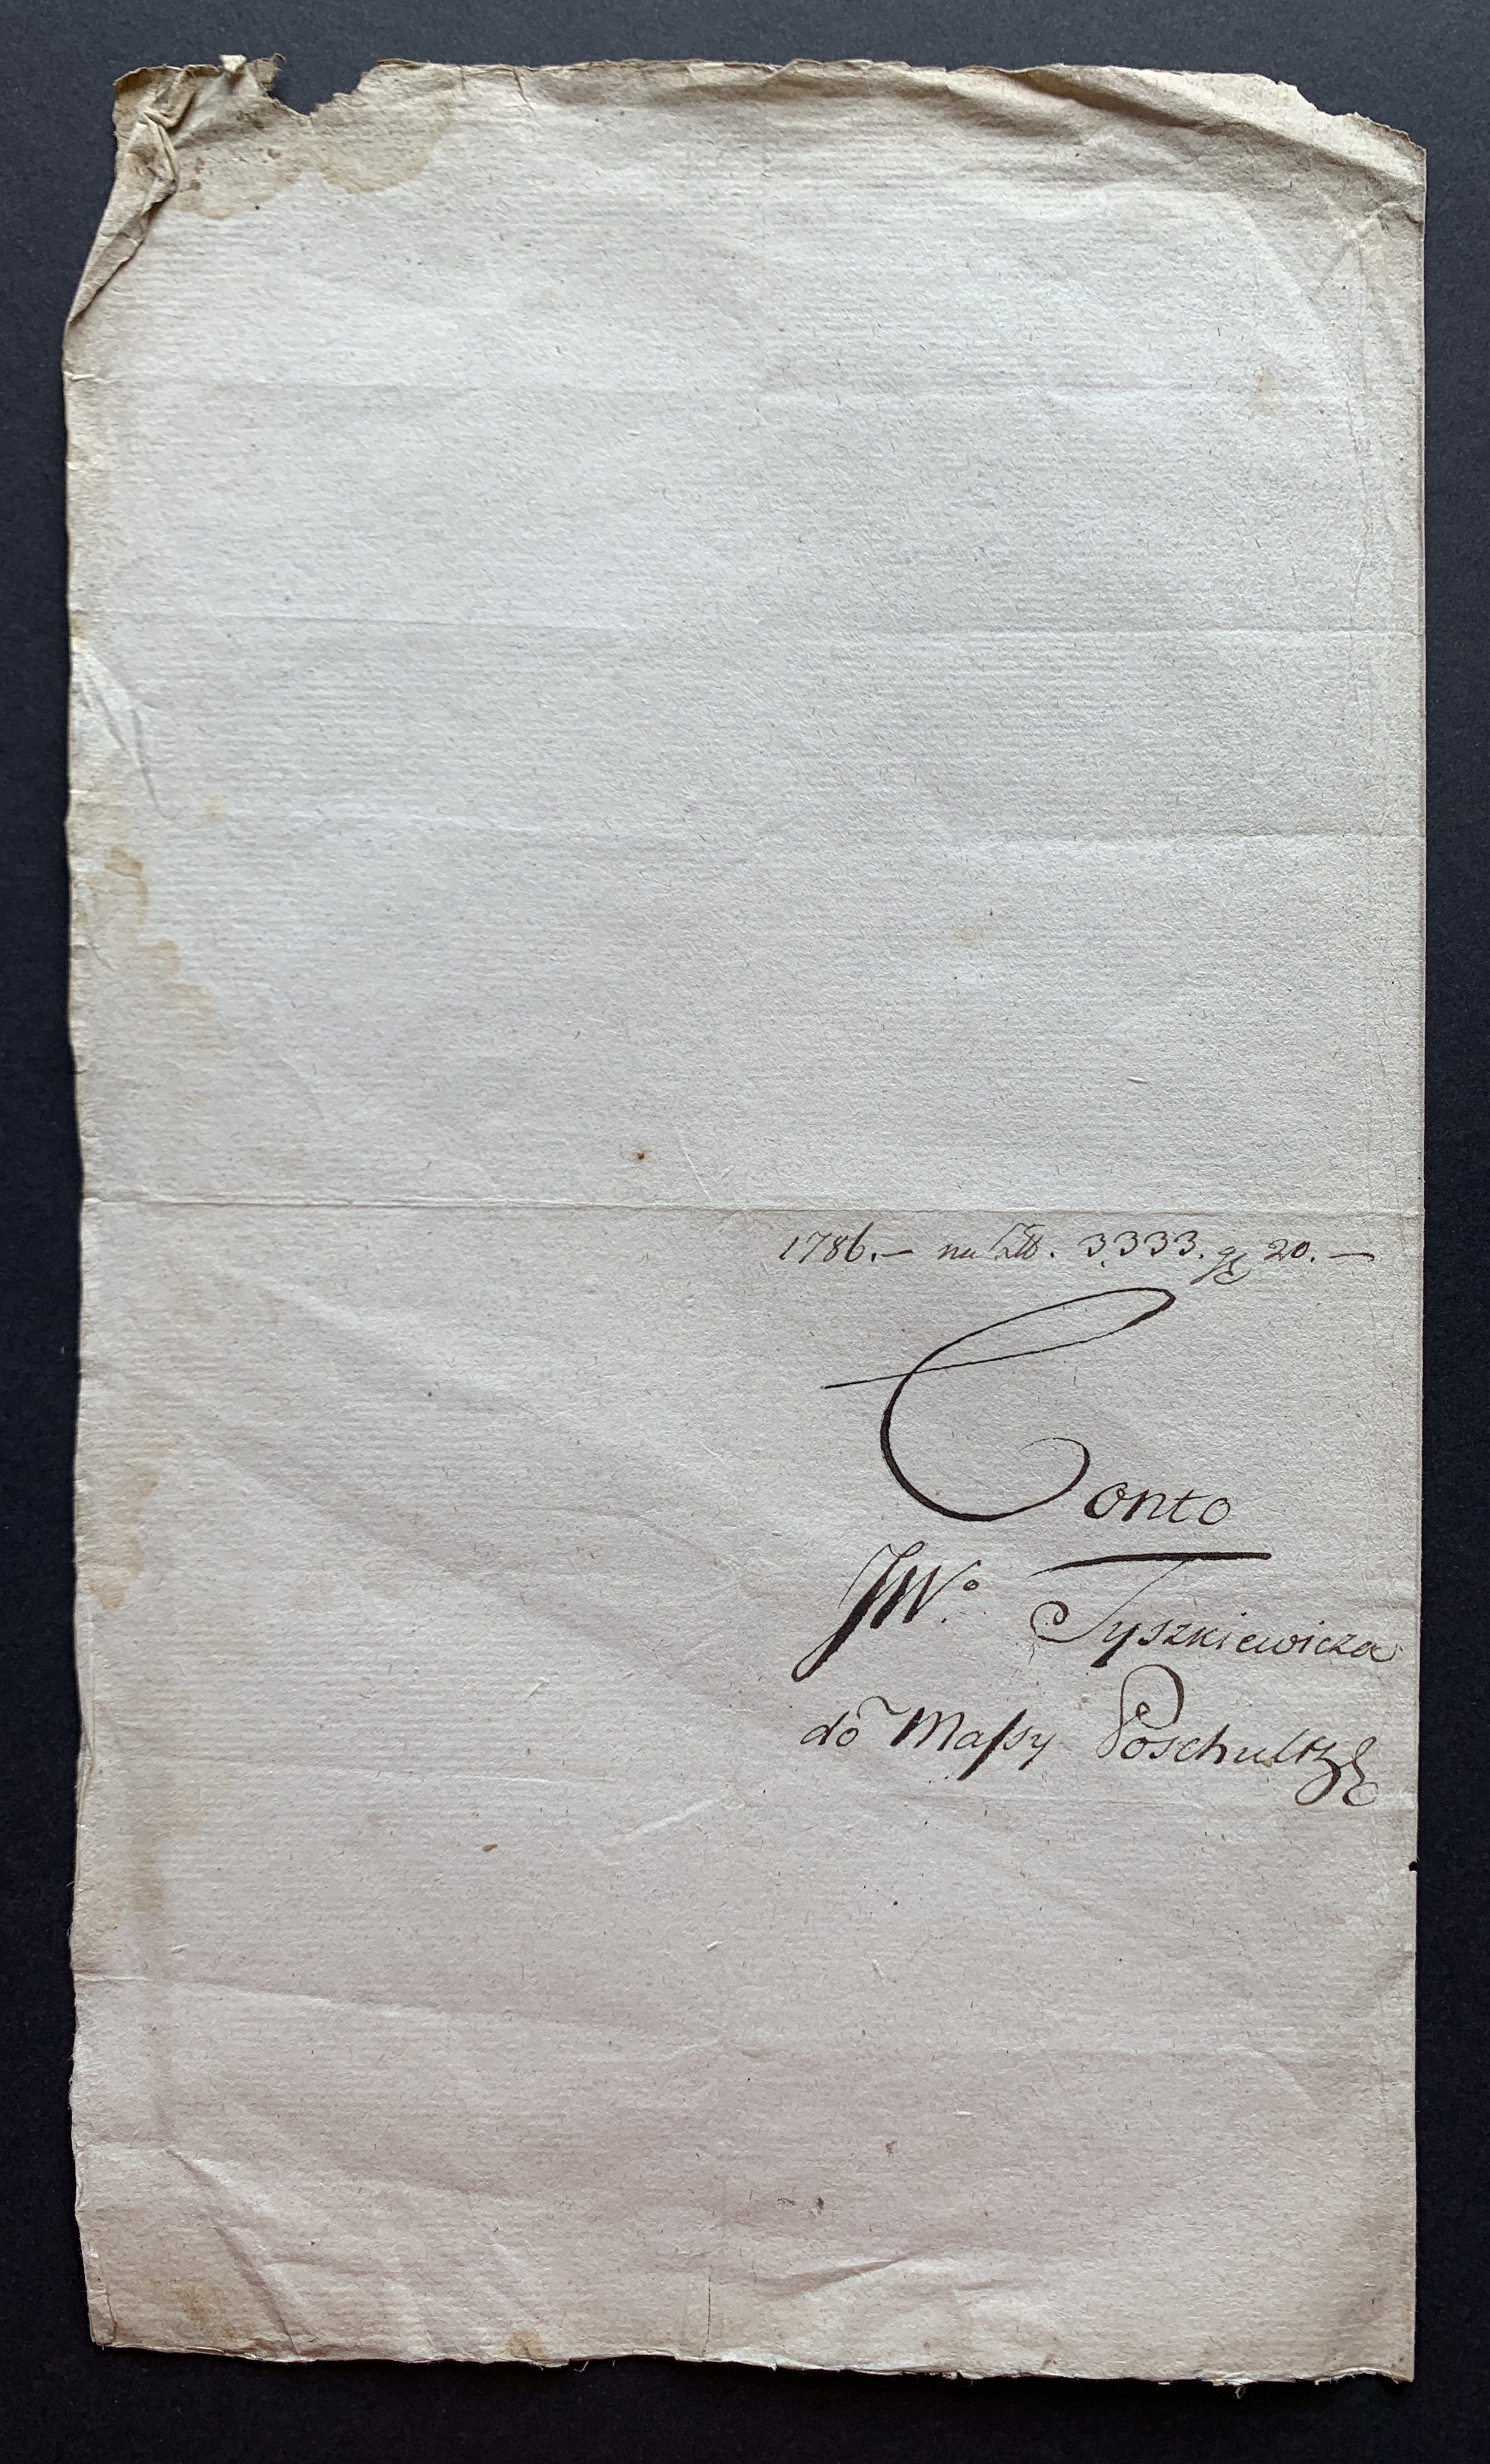 1786.— na Zł. 3333. gr 20.—
Conto
JWo. Tyszkiewicza
do Massy Poschultz